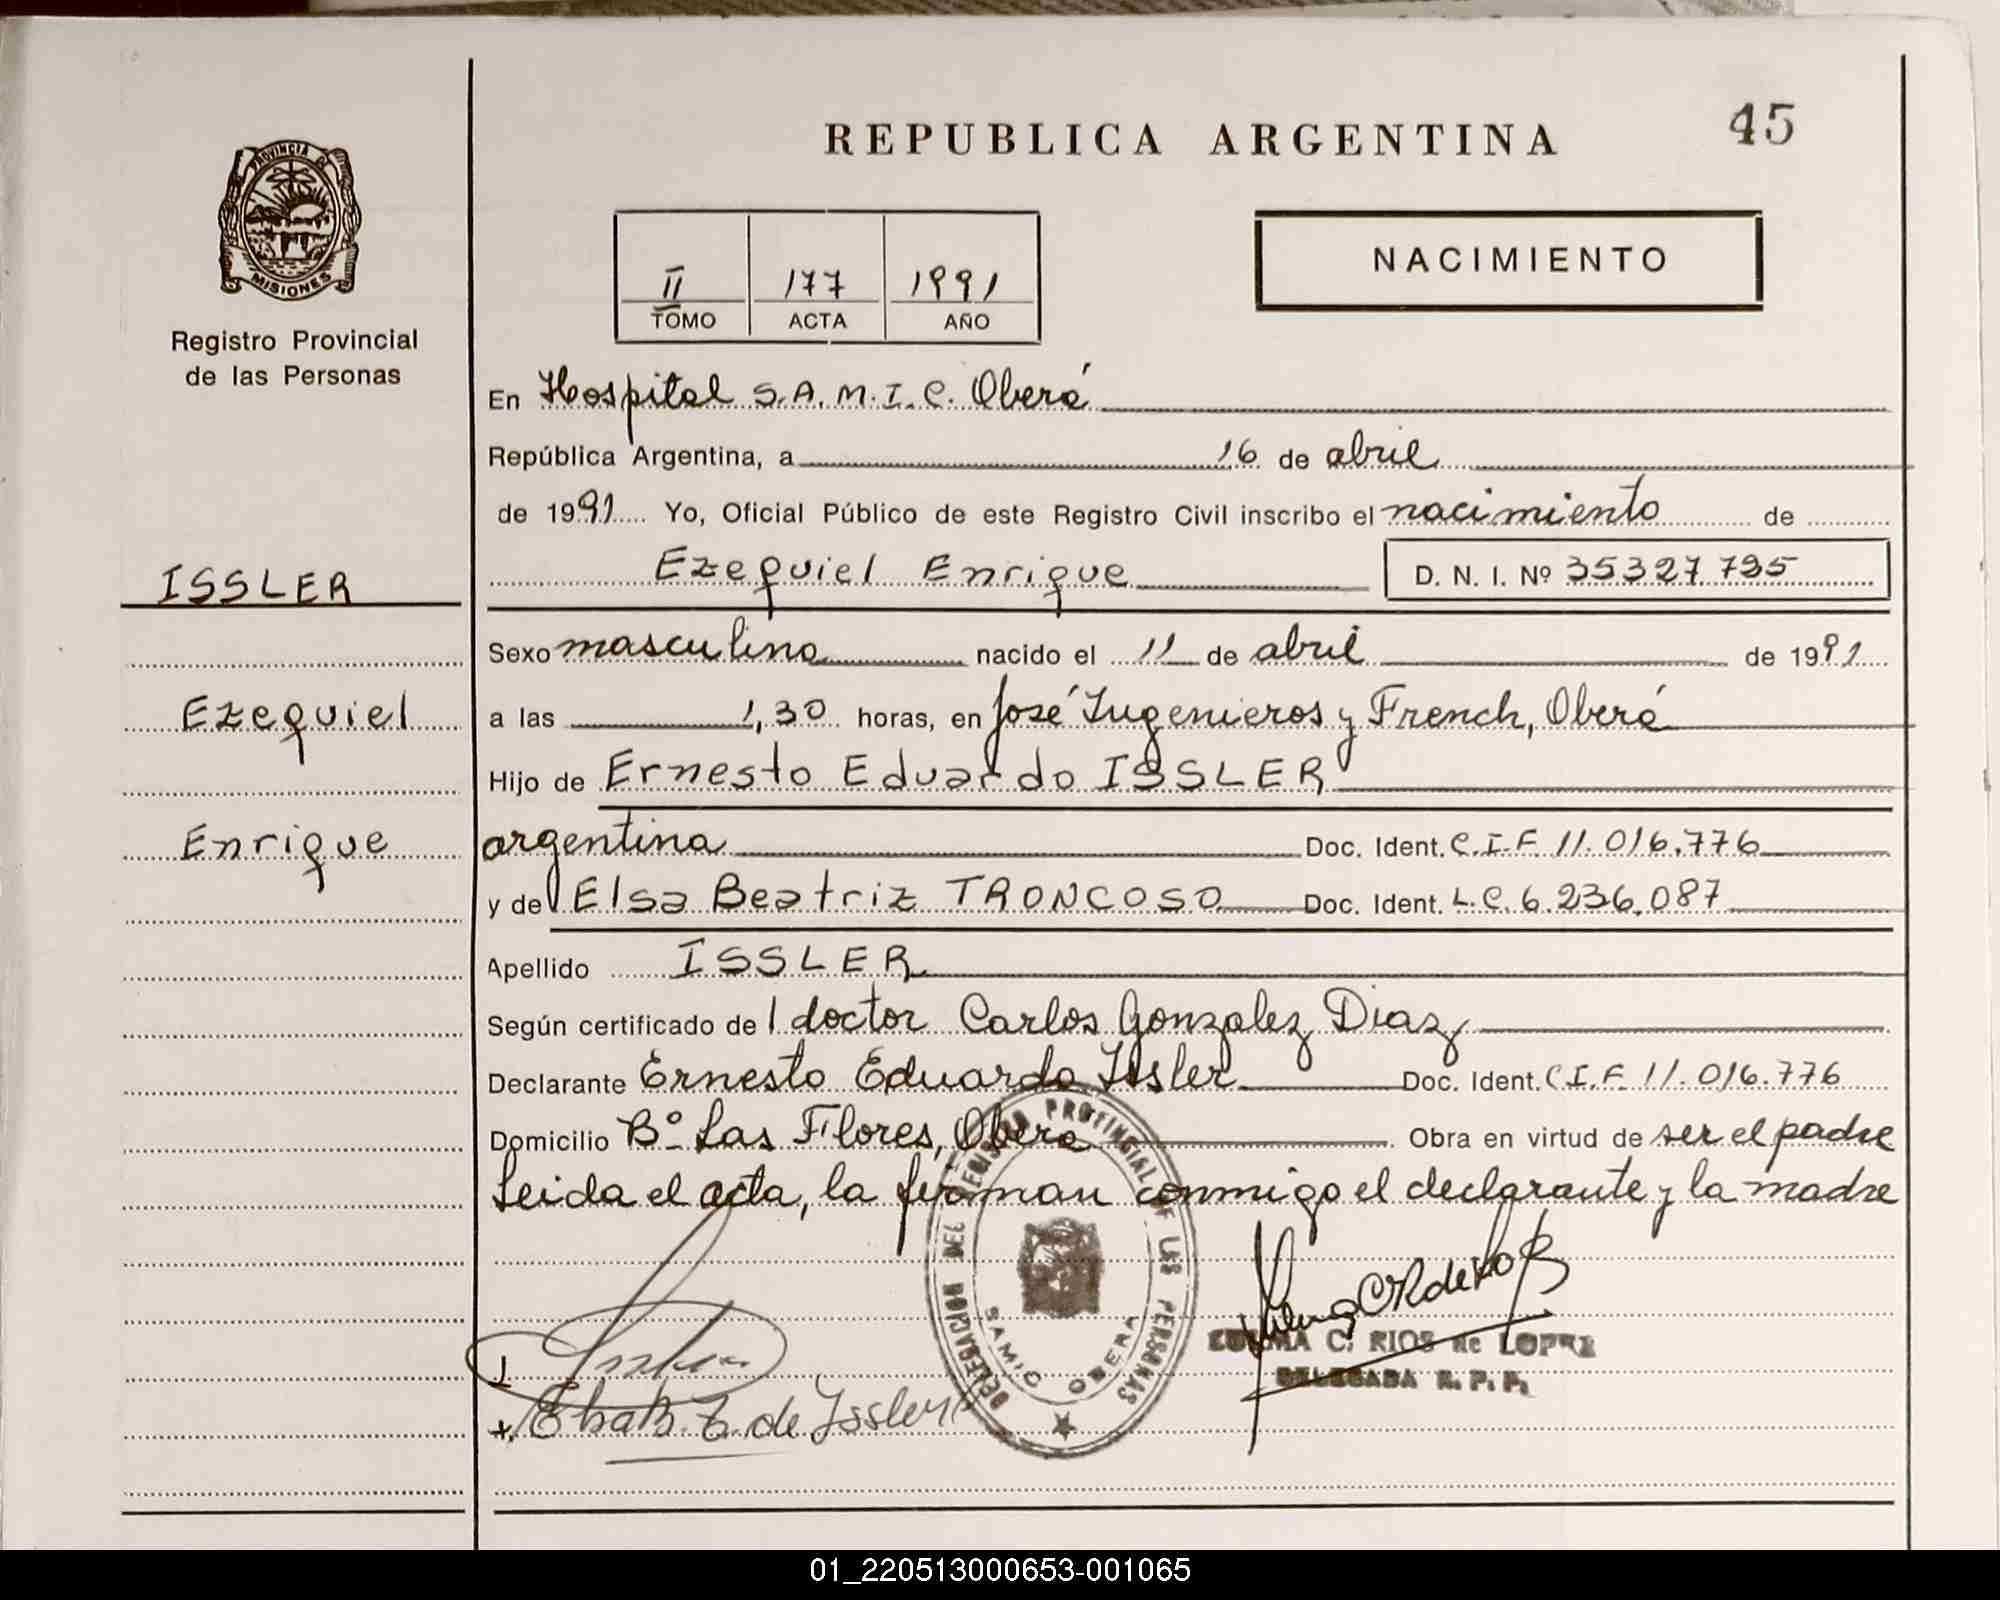 45
REPUBLICA ARGENTINA
PROVINCIA DE
MISIONES
Registro Provincial
de las Personas
NACIMIENTO
II 177 1991
TOMO ACTA AÑO
En Hospital S.A.M.I.C. Oberá
República Argentina, a 16 de abril
de 1991 Yo, Oficial Público de este Registro Civil inscribo el nacimiento de
Ezequiel Enrique D. N. I. Nº 35327795
ISSLER
Ezequiel
Enrique
Sexo masculino nacido el 11 de abril de 1991
a las 1,30 horas, en José Ingenieros y French, Oberá
Hijo de Ernesto Eduardo ISSLER
argentina Doc. Ident. C.I.F. 11.016.776
y de Elsa Beatriz TRONCOSO Doc. Ident. L.C. 6.236.087
Apellido ISSLER
Según certificado de l doctor Carlos Gonzalez Diaz
Declarante Ernesto Eduardo Issler Doc. Ident. C.I.F. 11.016.776
Domicilio Bº Las Flores, Oberá Obra en virtud de ser el padre
Leida el acta, la firman conmigo el declarante y la madre
DELEGACION DEL REGISTRO PROVINCIAL DE LAS PERSONAS
SAMIC OBERA
Issler
C. RIOS de LOPEZ
DELEGADA R. P. P.
Elsa B. T. de Issler
01_220513000653-001065